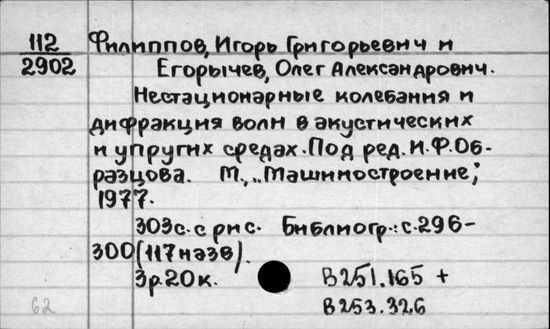 112 Филиппов, Игорь Григорьевич и
2902 Егорычев, Олег Александрович.
Нестационарные колебания и
дифракция волн в акустических
и упругих средах. Под ред. И.Ф.Об-
разцова. М., „Машиностроение;
1977.
303с. с рис. Библиогр.: с.296-
300 (117 назв).
3р.20к.
В251.165 +
62 В253.326